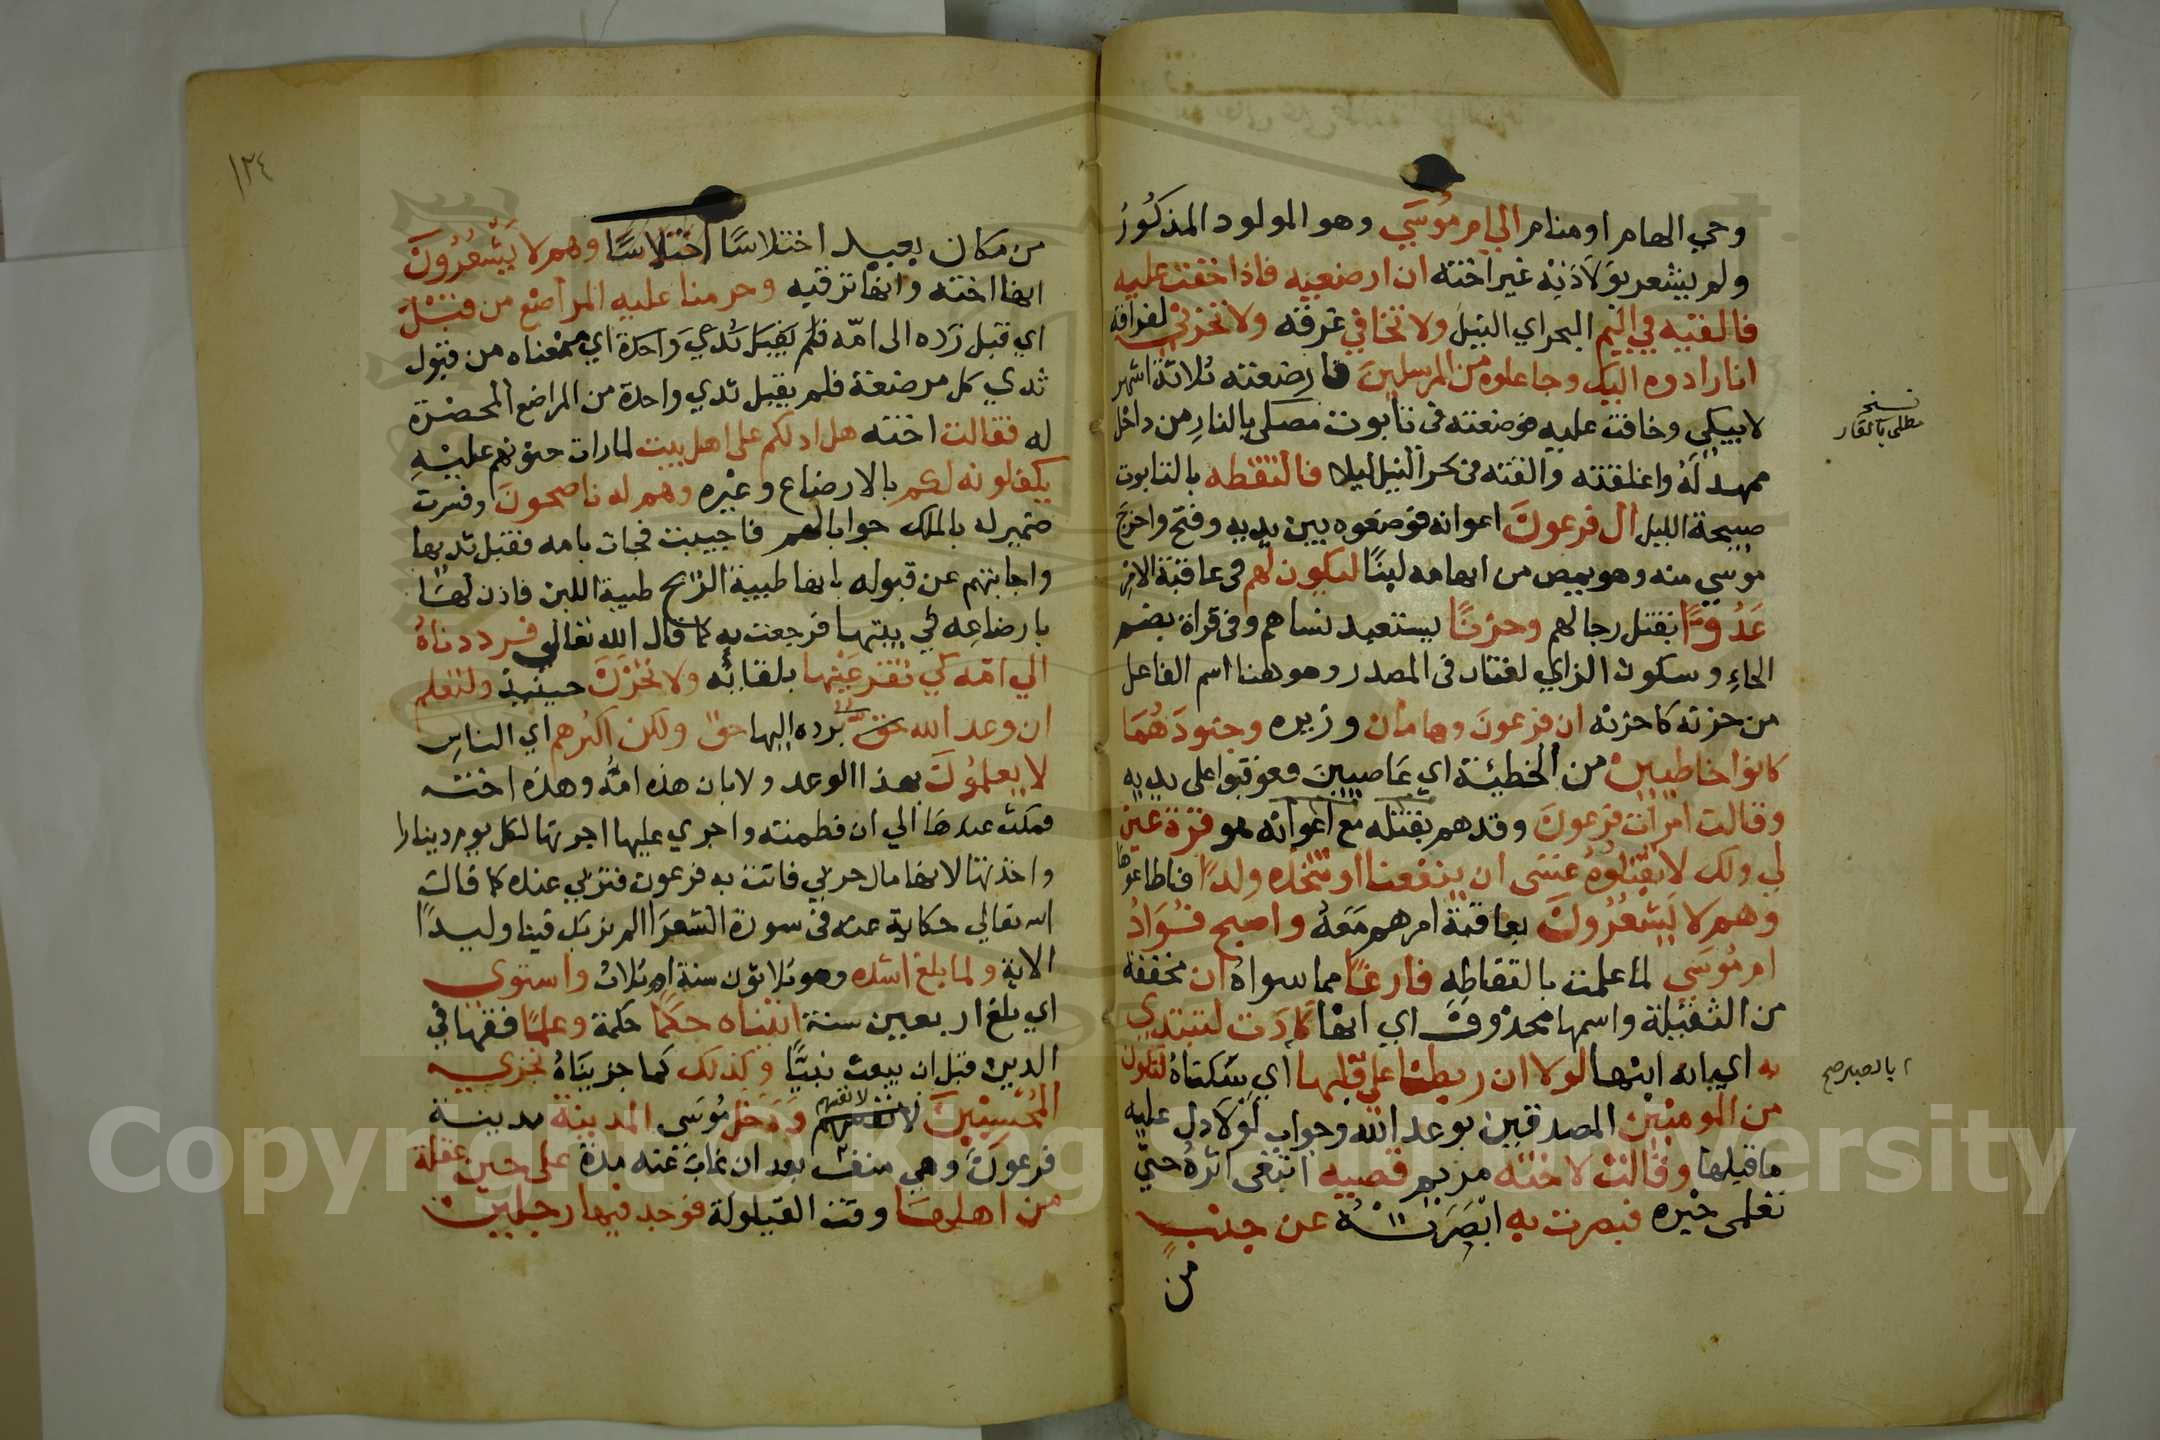 وحي الهام او منام الي ام موسي وهو المولود المذكور
ولم يشعر بولادته غير اخته ان ارضعيه فاذا خفت عليه
فالقيه في اليم البحر اي النيل ولا تخافي غرقه ولا تحزني لفراقه
انا رادوه اليك وجاعلوه من المرسلين فارضعته ثلاثة اشهر
لا يبكي وخافت عليه فوضعته في تابوت مصلي بالنار من داخل
ممهد له واغلقته والقته في بحر النيل ليلا فالتقطه بالتابوت
صبيحة الليل ال فرعون اعوانه فوضعوه بين يديه وفتح واخرج
موسي منه وهو يمص من ابهامه لبنا ليكون لهم في عاقبة الامر
عدوا يقتل رجالهم وحزنا يستعبد نساهم وفي قراة بضم
الحاء وسكون الزاي لغتان في المصدر وهو هنا اسم الفاعل
من حزنه كاحزنه ان فرعون وهامان وزيره وجنودهما
كانوا خاطيين من الخطيئة اي عاصيين فعوقبوا علي يديه
وقالت امرات فرعون وقد هم بقتله مع اعوانه هو قرة عين
لي ولك لا تقتلوه عسى ان ينفعنا او نتخذه ولدا فاطاعوها
وهم لا يشعرون بعاقبة امرهم معه واصبح فؤاد
ام موسي لما علمت بالتقاطه فارغا مما سواه ان مخففة
من الثقيلة واسمها محذوف اي انها كادت لتبتدي
به اي بانه ابنها لولا ان ربطنا علي قلبها اي سكناه لتكون
من المومنين المصدقين بوعد الله وجواب لولا دل عليه
ما قبلها وقالت لاخته مريم قصيه اتبعي اثره حتي
تعلمي خبره فبصرت به ابصرته عن جنب
من
نسخه
مطلي بالقار
ا بالصبر صح
١٢٤
من مكان بعيد اختلاسا اختلاسا وهم لا يشعرون
انها اخته وانها ترقبه وحرمنا عليه المراضع من قبل
اي قبل رده الى امه فلم يقبل ثدي واحدة اي منعناه من قبول
ثدي كل مرضعة فلم يقبل ثدي واحدة من المراضع المحضرة
له فقالت اخته هل ادلكم على اهل بيت لما رات حنوهم عليه
يكفلونه لكم بالارضاع وغيره وهم له ناصحون وفسرت
ضمير له بالملك جوابا لهم فاجيبت فجات بامه فقبل ثديها
واجابتهم عن قبوله بانها طيبة الريح طيبة اللبن فاذن لها
بارضاعه في بيتها فرجعت به كما قال الله تعالي فرددناه
الي امه كي تقر عينها بلقائه ولا تحزن حينيذ ولتعلم
ان وعد الله حق برده اليها حق ولكن اكثرهم اي الناس
لا يعلمون بهذا الوعد ولا بان هذه امه وهذه اخته
فمكث عندها الي ان فطمته واجري عليها اجرتها لكل يوم دينارا
واخذتها لانها مال حربي فاتت به فرعون فتربي عنده كما قالت
الله تعالي حكاية عنه في سورة الشعرا الم نربك فينا وليدا
الاية ولما بلغ اشده وهو ثلاثون سنة او ثلاث واستوي
اي بلغ اربعين سنة اتيناه حكما حكمة وعلما فقها في
الدين قبل ان يبعث نبيا وكذلك كما جزيناه نجزي
المحسنين لانفسهم ودخل موسى المدينة مدينة
لانفسهم
فرعون وهي منف بعد ان غاب عنه مدة على حين غفلة
من اهلها وقت القيلولة فوجد فيها رجلين
Copyright © King Saud University